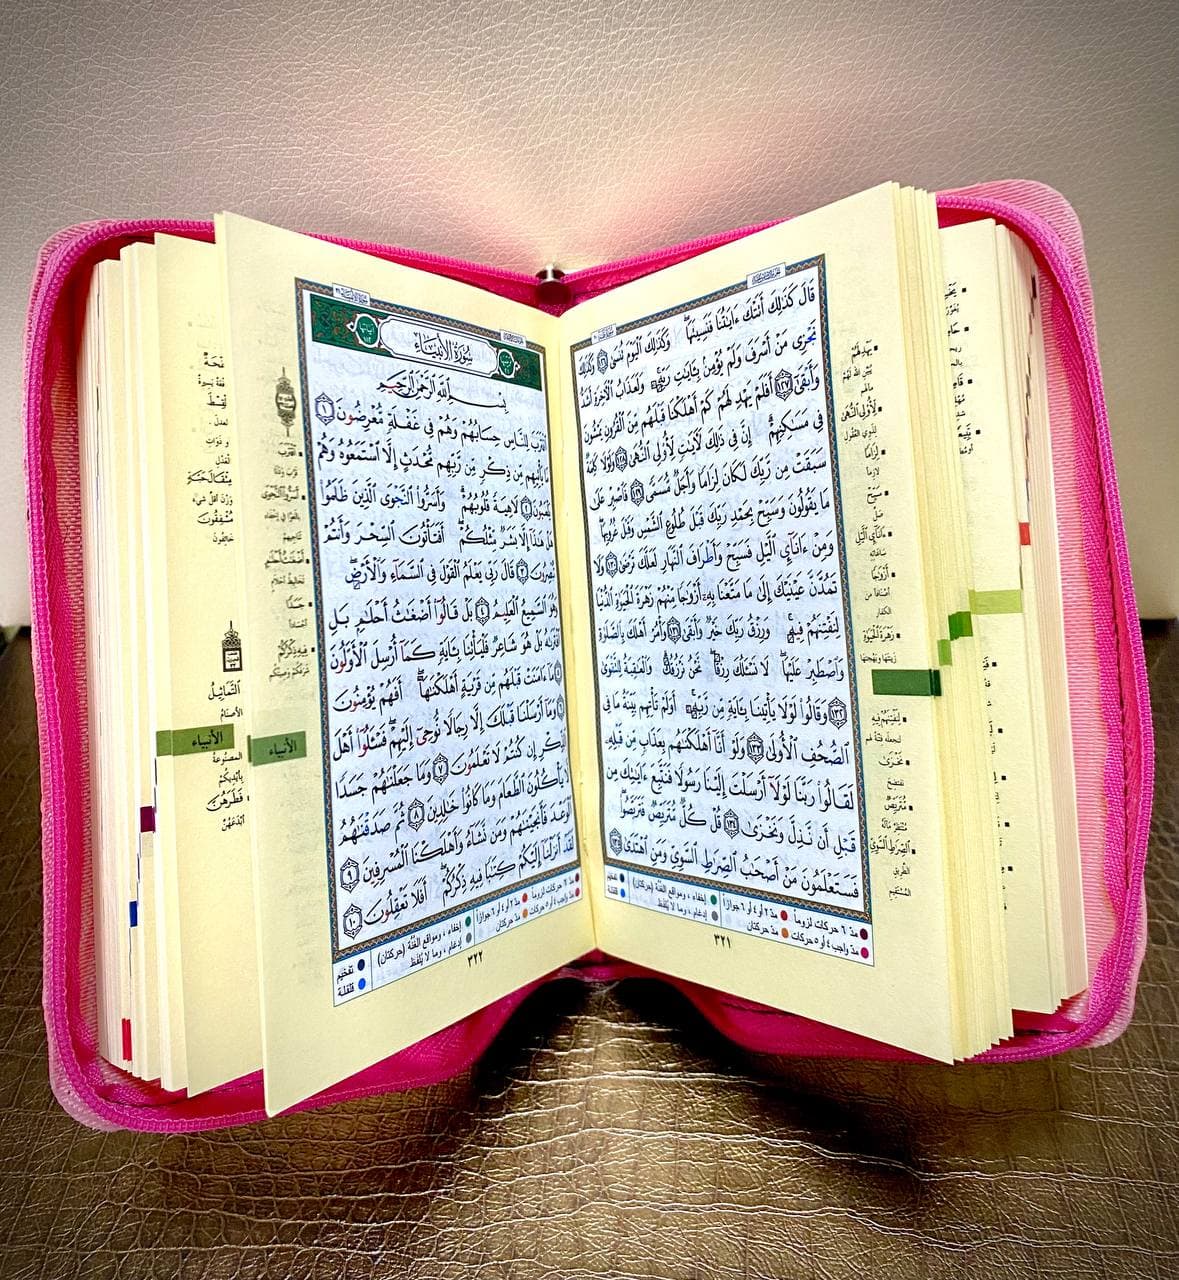 قَالَ كَذَٰلِكَ أَتَتْكَ ءَايَٰتُنَا فَنَسِيتَهَا ۖ وَكَذَٰلِكَ ٱلْيَوْمَ تُنسَىٰ ١٢٦ وَكَذَٰلِكَ
نَجْزِى مَنْ أَسْرَفَ وَلَمْ يُؤْمِنۢ بِـَٔايَٰتِ رَبِّهِۦ ۚ وَلَعَذَابُ ٱلْـَٔاخِرَةِ أَشَدُّ
وَأَبْقَىٰٓ ١٢٧ أَفَلَمْ يَهْدِ لَهُمْ كَمْ أَهْلَكْنَا قَبْلَهُم مِّنَ ٱلْقُرُونِ يَمْشُونَ
فِى مَسَٰكِنِهِمْ ۗ إِنَّ فِى ذَٰلِكَ لَـَٔايَٰتٍ لِّأُو۟لِى ٱلنُّهَىٰ ١٢٨ وَلَوْلَا كَلِمَةٌ
سَبَقَتْ مِن رَّبِّكَ لَكَانَ لِزَامًا وَأَجَلٌ مُّسَمًّى ١٢٩ فَٱصْبِرْ عَلَىٰ
مَا يَقُولُونَ وَسَبِّحْ بِحَمْدِ رَبِّكَ قَبْلَ طُلُوعِ ٱلشَّمْسِ وَقَبْلَ غُرُوبِهَا ۖ
وَمِنْ ءَانَآئِ ٱلَّيْلِ فَسَبِّحْ وَأَطْرَافَ ٱلنَّهَارِ لَعَلَّكَ تَرْضَىٰ ١٣٠ وَلَا
تَمُدَّنَّ عَيْنَيْكَ إِلَىٰ مَا مَتَّعْنَا بِهِۦٓ أَزْوَٰجًا مِّنْهُمْ زَهْرَةَ ٱلْحَيَوٰةِ ٱلدُّنْيَا
لِنَفْتِنَهُمْ فِيهِ ۚ وَرِزْقُ رَبِّكَ خَيْرٌ وَأَبْقَىٰ ١٣١ وَأْمُرْ أَهْلَكَ بِٱلصَّلَوٰةِ
وَٱصْطَبِرْ عَلَيْهَا ۖ لَا نَسْـَٔلُكَ رِزْقًا ۖ نَّحْنُ نَرْزُقُكَ ۗ وَٱلْعَٰقِبَةُ لِلتَّقْوَىٰ
١٣٢ وَقَالُوا۟ لَوْلَا يَأْتِينَا بِـَٔايَةٍ مِّن رَّبِّهِۦٓ ۚ أَوَلَمْ تَأْتِهِم بَيِّنَةُ مَا فِى
ٱلصُّحُفِ ٱلْأُولَىٰ ١٣٣ وَلَوْ أَنَّآ أَهْلَكْنَٰهُم بِعَذَابٍ مِّن قَبْلِهِۦ
لَقَالُوا۟ رَبَّنَا لَوْلَآ أَرْسَلْتَ إِلَيْنَا رَسُولًا فَنَتَّبِعَ ءَايَٰتِكَ مِن
قَبْلِ أَن نَّذِلَّ وَنَخْزَىٰ ١٣٤ قُلْ كُلٌّ مُّتَرَبِّصٌ فَتَرَبَّصُوا۟ ۖ
فَسَتَعْلَمُونَ مَنْ أَصْحَٰبُ ٱلصِّرَٰطِ ٱلسَّوِىِّ وَمَنِ ٱهْتَدَىٰ ١٣٥
مدّ ٦ حركات لزوماً مدّ ٢ أو ٤ أو ٦ جوازاً إخفاء ، ومواقع الغُنَّة (حركتان) تفخيم
مدّ واجب ٤ أو ٥ حركات مدّ حركتان إدغام ، وما لا يُلفَظ قلقلة
٣٢١
يَهْدِ لَهُمْ
يُبَيِّن اللهُ لَهُمْ
مآلهم
لِأُوْلِي النُّهَى
لِذَوِي العُقُولِ
لِزَامًا
لازِمًا
سَبِّحْ
صَلِّ
ءَانَآئِ ٱلَّيْلِ
سَاعَاتِه
أَزْوَٰجًا
أَصْنَافًا من
الكفار
زَهْرَةَ ٱلْحَيَوٰةِ
زِينَتَهَا وَبَهْجَتَهَا
لِنَفْتِنَهُمْ فِيهِ
لنجعله فتنة لهم
نَخْزَىٰ
نفتضح
مُتَرَبِّصٌ
مُنْتَظِرٌ مَآلَهُ
ٱلصِّرَٰطِ ٱلسَّوِىِّ
الطَّرِيقِ
المُسْتَقِيمِ
سُورَةُ الأَنبِيَاءِ
بِسْمِ ٱللَّهِ ٱلرَّحْمَٰنِ ٱلرَّحِيمِ
ٱقْتَرَبَ لِلنَّاسِ حِسَابُهُمْ وَهُمْ فِى غَفْلَةٍ مُّعْرِضُونَ ١
مَا يَأْتِيهِم مِّن ذِكْرٍ مِّن رَّبِّهِم مُّحْدَثٍ إِلَّا ٱسْتَمَعُوهُ وَهُمْ
يَلْعَبُونَ ٢ لَاهِيَةً قُلُوبُهُمْ ۗ وَأَسَرُّوا۟ ٱلنَّجْوَى ٱلَّذِينَ ظَلَمُوا۟
هَلْ هَٰذَآ إِلَّا بَشَرٌ مِّثْلُكُمْ ۖ أَفَتَأْتُونَ ٱلسِّحْرَ وَأَنتُمْ
تُبْصِرُونَ ٣ قَالَ رَبِّى يَعْلَمُ ٱلْقَوْلَ فِى ٱلسَّمَآءِ وَٱلْأَرْضِ ۖ
وَهُوَ ٱلسَّمِيعُ ٱلْعَلِيمُ ٤ بَلْ قَالُوٓا۟ أَضْغَٰثُ أَحْلَٰمٍۭ بَلِ
ٱفْتَرَىٰهُ بَلْ هُوَ شَاعِرٌ فَلْيَأْتِنَا بِـَٔايَةٍ كَمَآ أُرْسِلَ ٱلْأَوَّلُونَ
٥ مَآ ءَامَنَتْ قَبْلَهُم مِّن قَرْيَةٍ أَهْلَكْنَٰهَآ ۖ أَفَهُمْ يُؤْمِنُونَ
٦ وَمَآ أَرْسَلْنَا قَبْلَكَ إِلَّا رِجَالًا نُّوحِىٓ إِلَيْهِمْ ۖ فَسْـَٔلُوٓا۟ أَهْلَ
ٱلذِّكْرِ إِن كُنتُمْ لَا تَعْلَمُونَ ٧ وَمَا جَعَلْنَٰهُمْ جَسَدًا
لَّا يَأْكُلُونَ ٱلطَّعَامَ وَمَا كَانُوا۟ خَٰلِدِينَ ٨ ثُمَّ صَدَقْنَٰهُمُ
ٱلْوَعْدَ فَأَنجَيْنَٰهُمْ وَمَن نَّشَآءُ وَأَهْلَكْنَا ٱلْمُسْرِفِينَ ٩
لَقَدْ أَنزَلْنَآ إِلَيْكُمْ كِتَٰبًا فِيهِ ذِكْرُكُمْ ۖ أَفَلَا تَعْقِلُونَ ١٠
مدّ ٦ حركات لزوماً مدّ ٢ أو ٤ أو ٦ جوازاً إخفاء ، ومواقع الغُنَّة (حركتان) تفخيم
مدّ واجب ٤ أو ٥ حركات مدّ حركتان إدغام ، وما لا يُلفَظ قلقلة
٣٢٢
الأنبياء
الأنبياء
نَفْحَةٌ
مِثْقَالَ حَبَّةٍ
وَزْنَ أقلّ شيء
مُشْفِقُونَ
خَائِفُونَ
التَّمَاثِيلُ
الأصنامُ
المصنوعةُ
بِأَيْدِيكُمْ
فَطَرَهُنَّ
أَبْدَعَهُنَّ